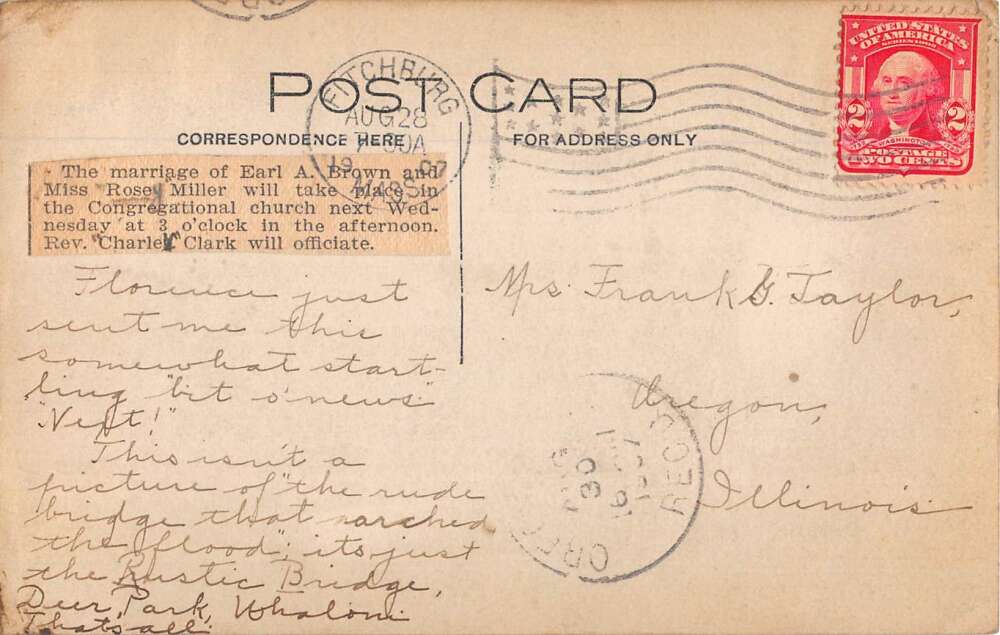 POST CARD
CORRESPONDENCE HERE
FOR ADDRESS ONLY
UNITED STATES
OF AMERICA
SERIES 1902
2 2
WASHINGTON
POSTAGE
TWO CENTS
FITCHBURG
AUG 28
7 30A
1907
MASS.
The marriage of Earl A. Brown and
Miss Rosey Miller will take place in
the Congregational church next Wed-
nesday at 3 o'clock in the afternoon.
Rev. Charley Clark will officiate.
Florence just
sent me this
somewhat start-
ling "bit o' news"
"Vept!"
This isn't a
picture of "the rude
bridge that arched
the flood", its just
the Rustic Bridge,
Deer Park, Whalom
Thats all.
Mrs. Frank G. Taylor,
Oregon,
Illinois.
OREGON
AUG
30
1907
REC'D